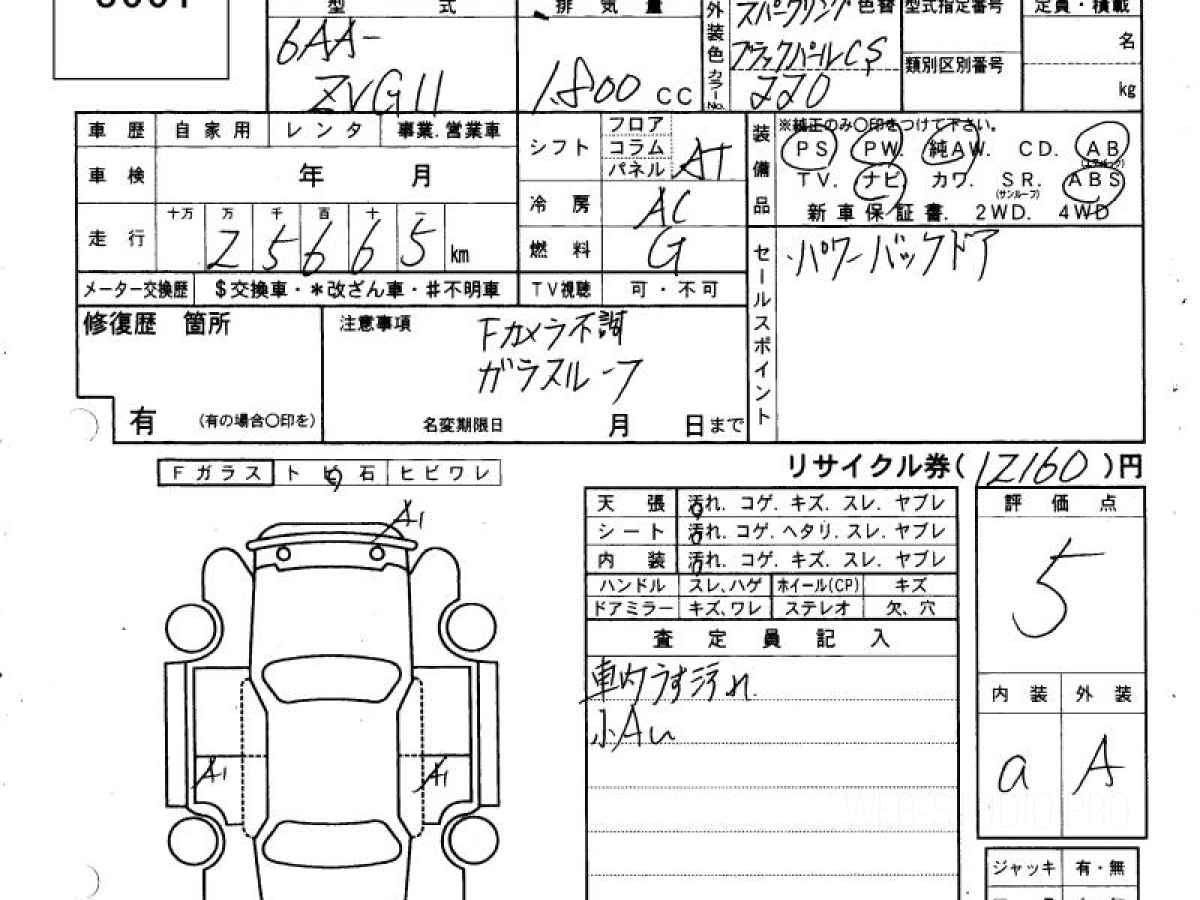 型 式 排 気 量 外装色 カラーNo. スパークリング 色替 型式指定番号 定員・積載
6AA- ブラックパールCS 名
ZVG11 1.800 CC 220 類別区別番号 kg
車 歴 自 家 用 レ ン タ 事業.営業車 シフト フロア コラム パネル AT 装備品 ※純正のみ○印をつけて下さい。
PS PW. 純AW. CD. AB (エアバック)
車 検 年 月 TV. ナビ カワ. SR. (サンルーフ) ABS
冷 房 AC 新 車 保 証 書. 2WD. 4WD
走 行 十万 万 千 百 十 一
2 5 6 6 5 km 燃 料 G セールスポイント ・パワーバックドア
メーター交換歴 $交換車・*改ざん車・#不明車 TV視聴 可・不可
修復歴 箇所 注意事項 Fカメラ不調
ガラスルーフ
有 (有の場合○印を) 名変期限日 月 日まで
Fガラス トビ石 ヒビワレ リサイクル券(12160)円
天 張 汚れ. コゲ. キズ. スレ. ヤブレ 評 価 点
シート 汚れ. コゲ. ヘタリ. スレ. ヤブレ
内 装 汚れ. コゲ. キズ. スレ. ヤブレ
ハンドル スレ、ハゲ ホイール(CP) キズ
ドアミラー キズ、ワレ ステレオ 欠、穴
5
査 定 員 記 入
車内うす汚れ
小Aい
内 装 外 装
a A
A1
A1 A1
WEB-STUDIO PRO
ジャッキ 有・無